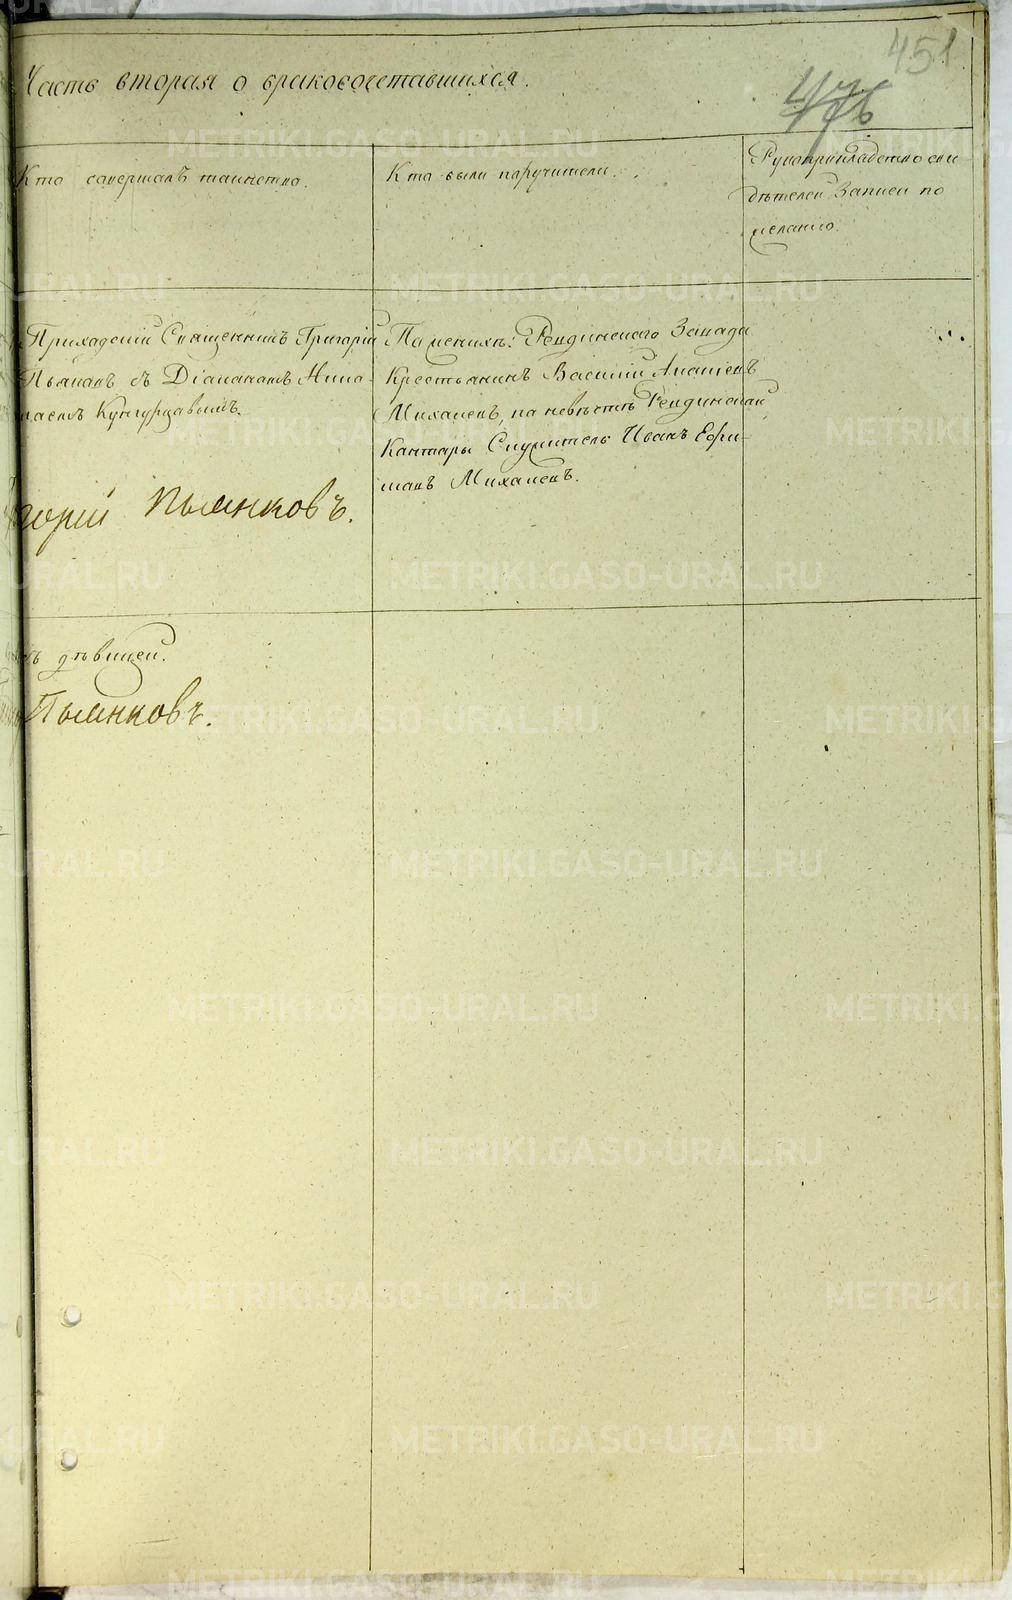 451
476
Часть вторая о бракосочетавшихся.
Кто совершалъ таинство.
Кто были поручители.
Рукоприкладство сви
дѣтелей Записи по
желанію.
Приходскій Священникъ Григорій
Пьянковъ съ Діакономъ Нико-
лаемъ Кунгурцовымъ.
горій Пьянковъ.
По женихѣ: Ревдинскаго Завода
Крестьянинъ Василій Ананіевъ
Михалевъ, по невѣстѣ Ревдинской
Канторы Служитель Иванъ Ефи-
мовъ Михалевъ.
съ дѣвицей.
Пьянковъ.
METRIKI.GASO-URAL.RU